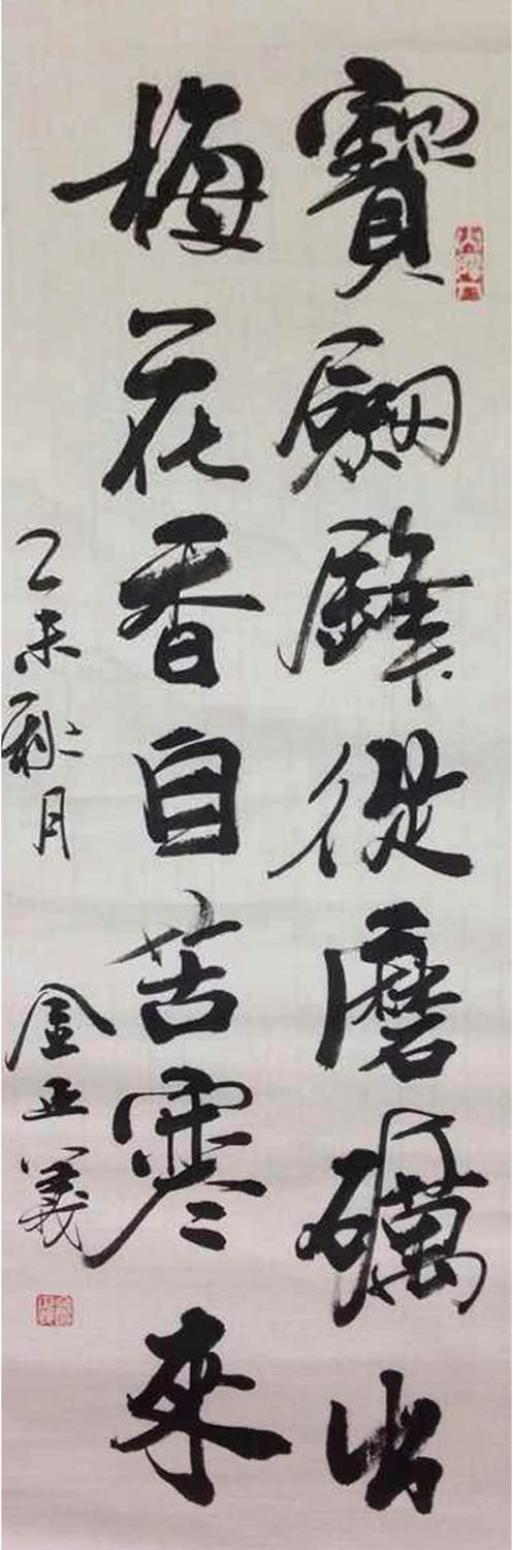 寶劍鋒從磨礪出
梅花香自苦寒來
乙未秋月 金正義